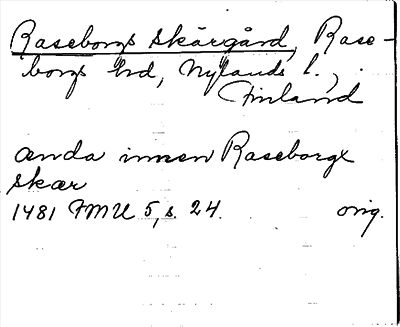 Raseborgs skärgård, Rase-
borgs hd, Nylands l.,
Finland
ænda innen Raseborgx
skær
1481 FMU 5, s. 24. orig.